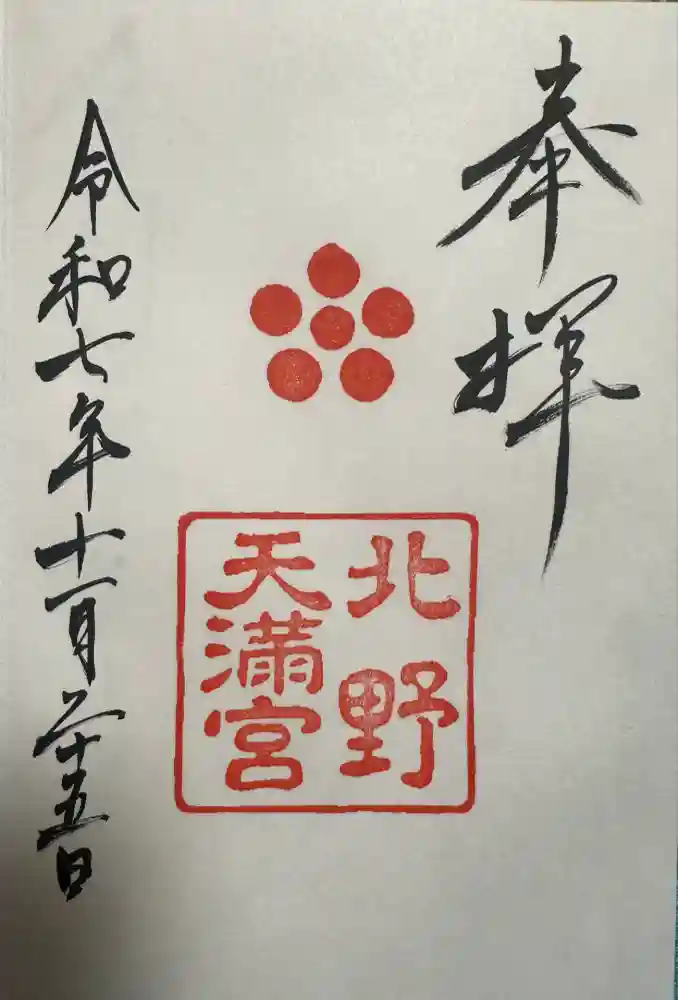 奉拝
北野
天満宮
令和七年十一月二十五日